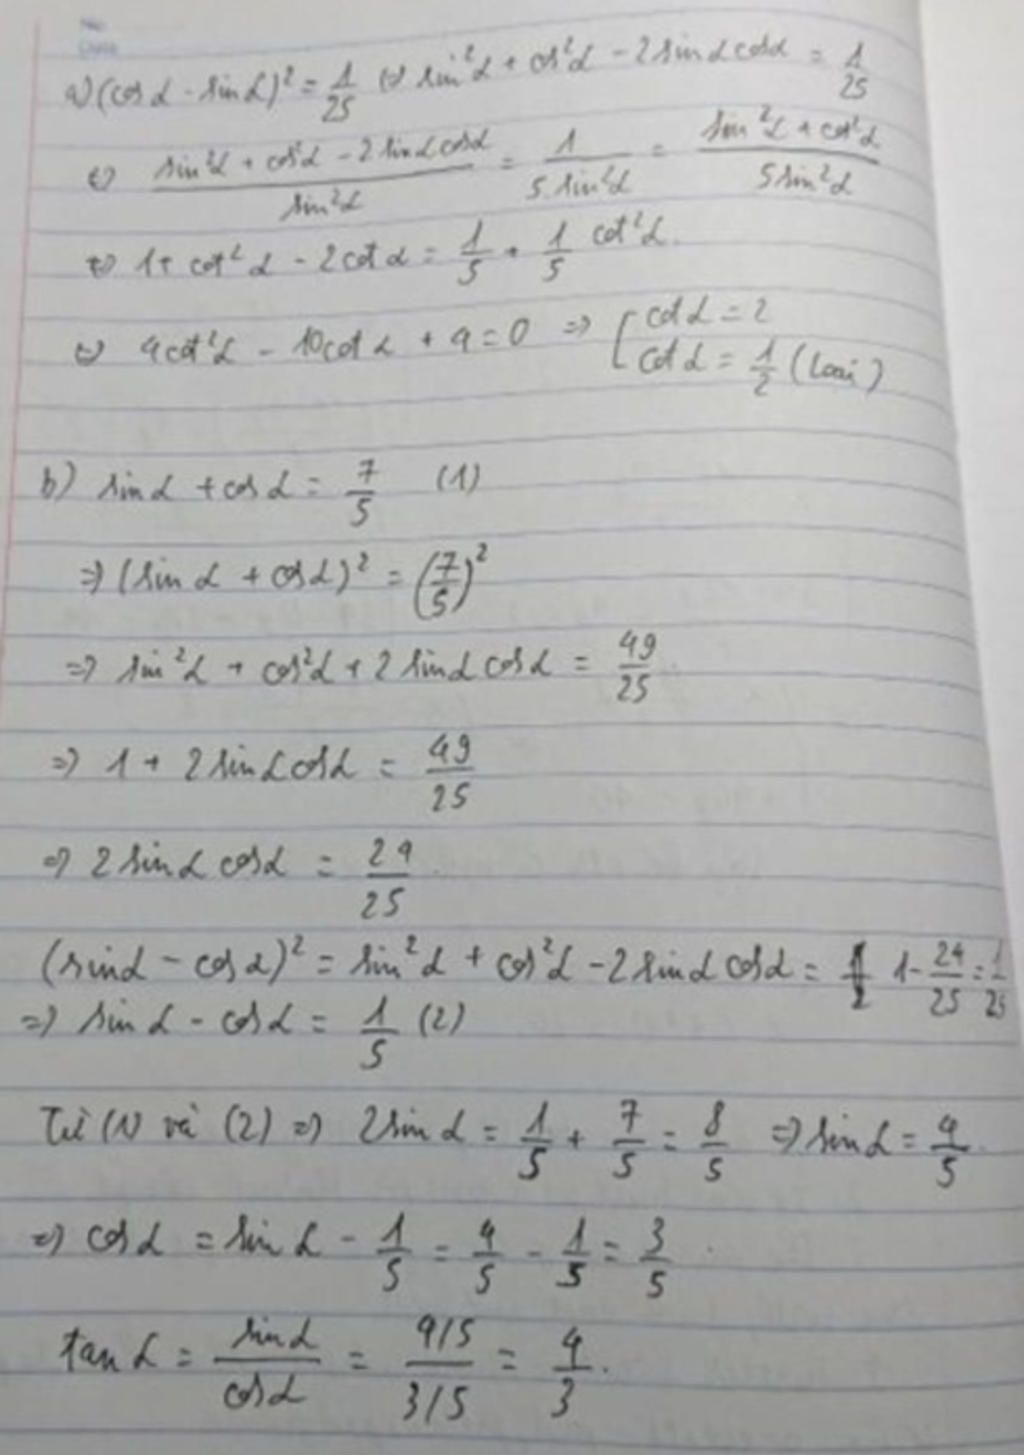 No
Date
a) (cos α - sin α)² = 1/25 ⇔ sin²α + cos²α - 2 sin α cos α = 1/25
⇔ (sin²α + cos²α - 2 sin α cos α)/(sin²α) = 1/(5.sin²α) = (sin²α + cos²α)/(5 sin²α)
⇔ 1 + cot²α - 2cot α = 1/5 + 1/5 cot²α.
⇔ 4cot²α - 10cot α + 4 = 0 ⇒ [cot α = 2
cot α = 1/2 (loại)
b) sin α + cos α = 7/5 (1)
⇒ (sin α + cos α)² = (7/5)²
⇒ sin²α + cos²α + 2 sin α cos α = 49/25
⇒ 1 + 2 sin α cos α = 49/25
⇒ 2 sin α cos α = 24/25
(sin α - cos α)² = sin²α + cos²α - 2 sin α cos α = 1 - 24/25 = 1/25
⇒ sin α - cos α = 1/5 (2)
Từ (1) và (2) ⇒ 2 sin α = 1/5 + 7/5 = 8/5 ⇒ sin α = 4/5.
⇒ cos α = sin α - 1/5 = 4/5 - 1/5 = 3/5
tan α = sin α/cos α = (4/5)/(3/5) = 4/3.